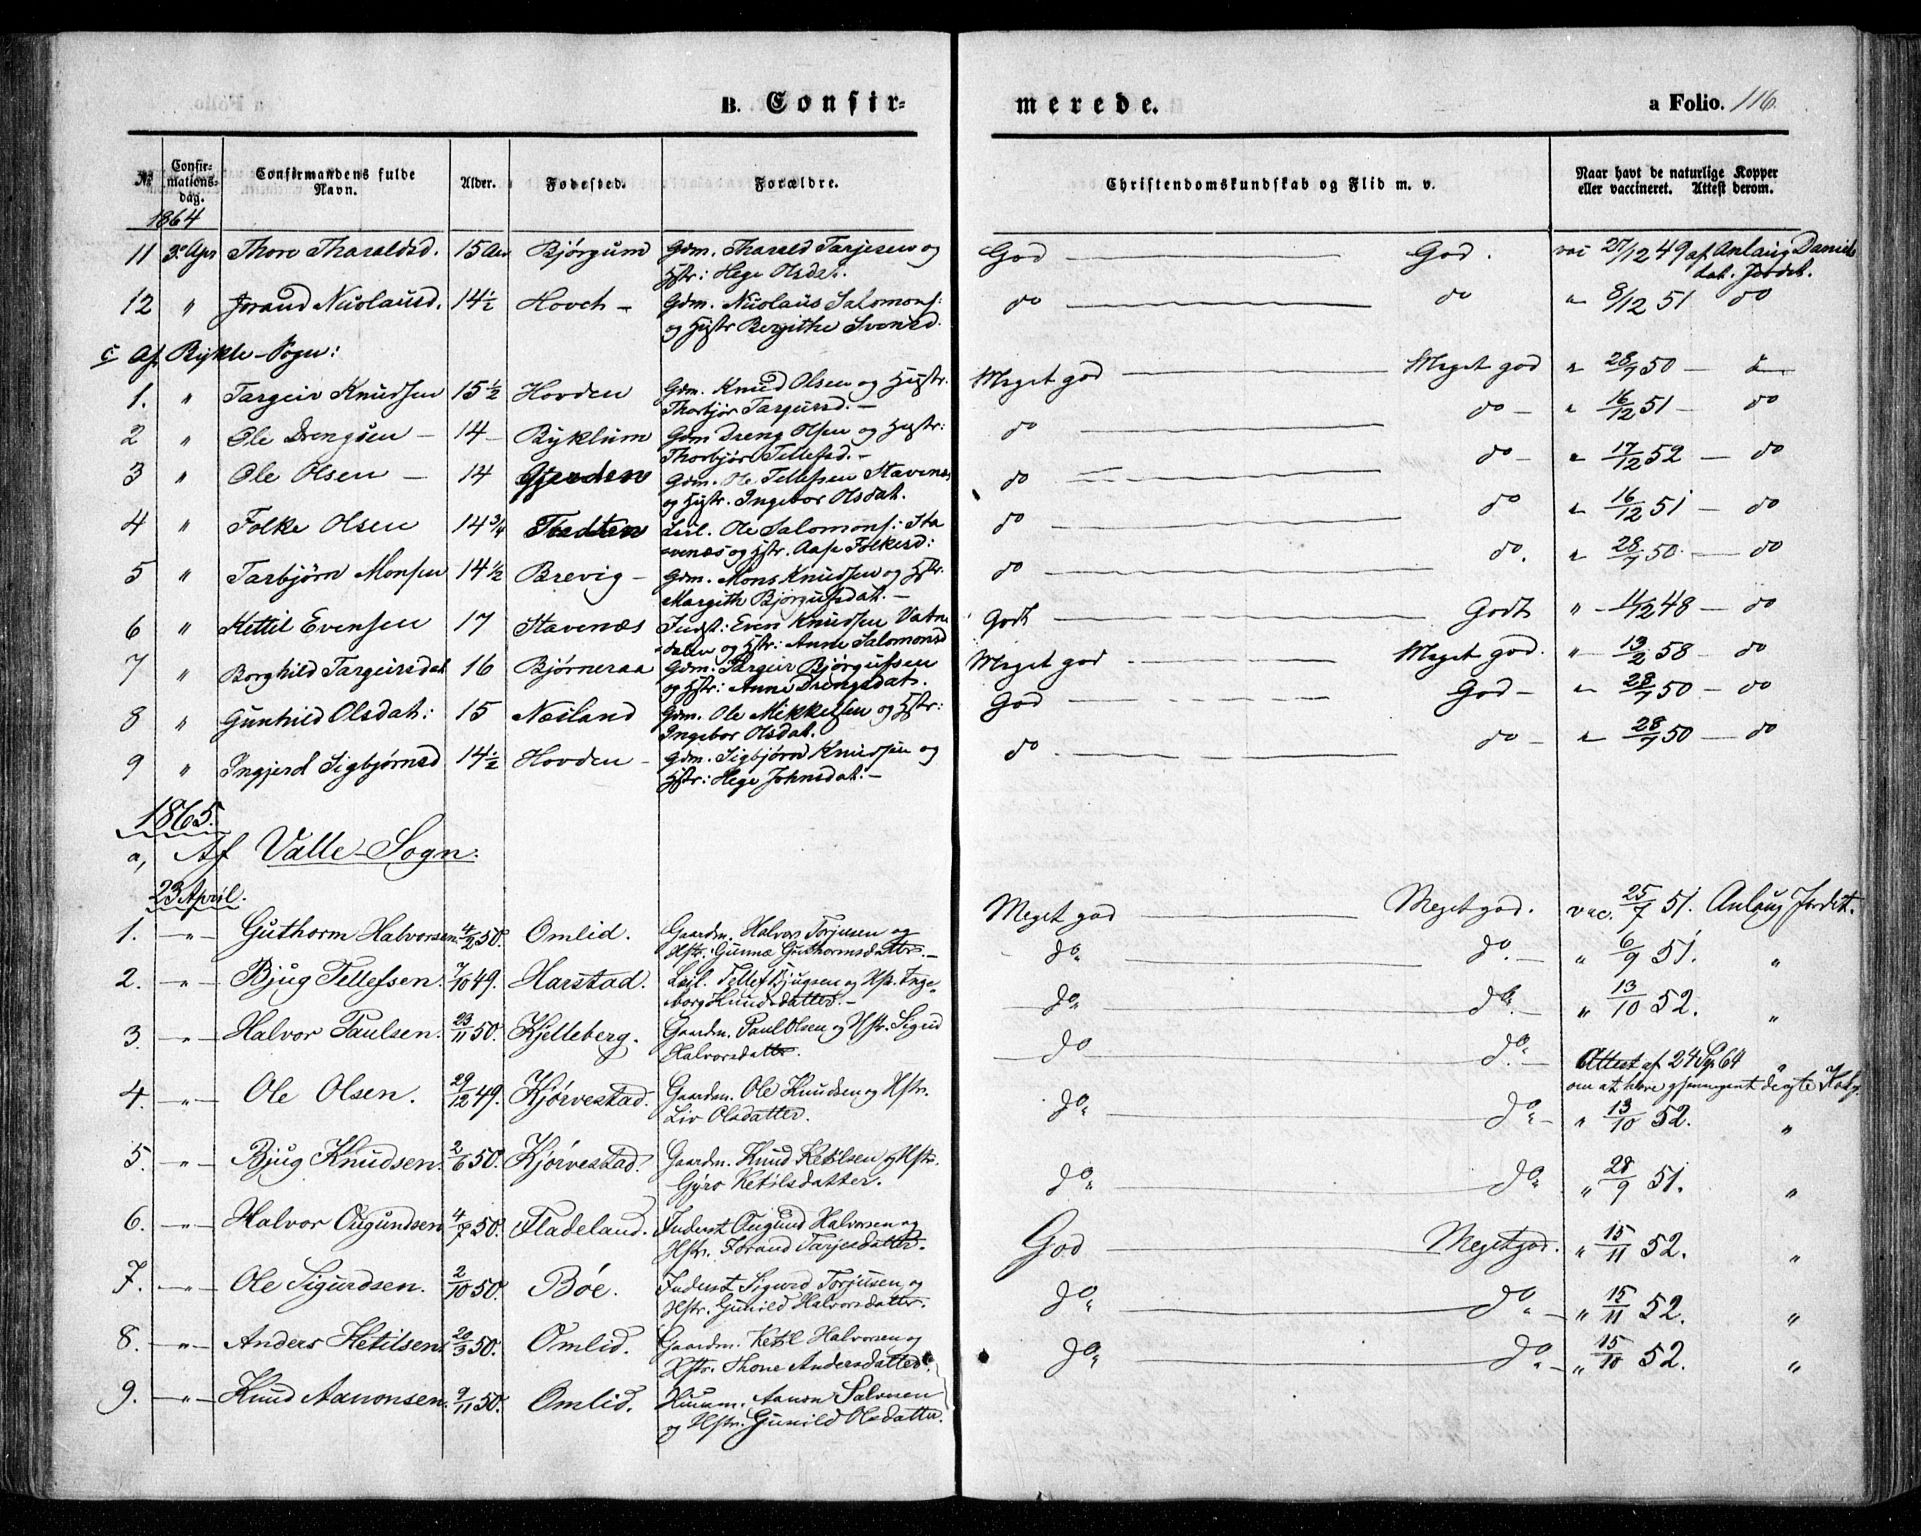 B. Confir-
merede.
a Folio. 116
№ Confirmations-dag. Confirmandens fulde Navn. Alder. Fødested. Forældre. Christendomskundskab og Flid m. v. Naar havt de naturlige Kopper eller vaccineret. Attest derom.
1864
11 3e Apr Thore Tharaldsd. 15 Aar Bjørgum Gdm. Tharald Tarjesen og God God. vac 27/12 49 af Anlaug Daniels
Hstr: Hege Olsdat. dat. Jordet.
12 " Jorand Nicolausd. 14½ Hovet – Gdm. Nicolaus Salomons: do do " 8/12 51 do
og Hustr Bergithe Svensd.
c Af Bykle-Sogn:
1. " Targeir Knudsen 15½ Hovden Gdm. Knud Olsen og Hustr. Meget god Meget god " 28/7 50
Thorbjør Targeirsd. –
2 " Ole Drengsen – 14 – Byklum Gdm Dreng Olsen og Hustr: do do – " 16/12 51 – do
Thorbjør Tellefsd. –
3 " Ole Olsen – 14 Gjerden Gdm. Ole Tellefsen Stavenæs do do – " 17/12 52 – do
og Hustr. Ingebor Olsdat.
4 " Folke Olsen 14¾ Tvedten Leil. Ole Salomons: Sta do do " 16/12 51 – do
-venæs og Hstr. Aase Folkesd:
5 " Tarbjørn Monsen 14½ Brevig – Gdm. Mons Knudsen og Hstr. do do. " 28/7 50 – do
Margith Bjørgufsdat. –
6 " Kettil Evensen 17 Stavenæs Indst: Even Knudsen Vatn- Godt Godt " 48 – do
dalen og Hstr: Anne Salomonsd
7 " Borghild Targeirsdat 16 Bjørneraa Gdm. Targeir Bjørgufsen Meget god Meget god. " 13/2 58 – do
og Hstr: Anne Drengsdat.
8 " Gunhild Olsdat: 15 Næsland Gdm. Ole Mikkelsen og Hstr: God God – " 28/7 50 – do
Ingebor Olsdat.
9 " Ingjerd Sigbjørnsd 14½ Hovden – Gdm. Sigbjørn Knudsen og do do – " 28/7 50 – do
Hstr: Hege Johnsdat: –
1865.
a, Af Valle-Sogn:
23 April.
1. " Guthorm Halvorsen. 4/2 50. Omlid. Gaardm. Halvor Torjusen og Meget god Meget god. vac. 25/7 51. Anlaug Jordet.
Hstr: Gunne Guthormsdatter. –
2. " Bjug Tellefsen. 7/10 49. Harstad. Leil. Tellef Bjugsen og Hstr. Inge- do do. " 6/9 51. "
borg Knudsdatter. –
3. " Halvor Paulsen. 23/11 50. Kjelleberg. Gaardm. Paul Olsen og Hstr. Sigrid do do. " 13/10 52. "
Halvorsdatter.
4. " Ole Olsen. 29/12 49. Kjørvestad. Gaardm. Ole Knudsen og Hstr. do do. Attest af 24 Sp. 64 "
Liv Olsdatter. om at have gjennemgaaet ægte Kop.
5. " Bjug Knudsen. 2/6 50. Kjørvestad. Gaardm. Knud Ketilsen og Hstr. do do. " 13/10 52. "
Gyro Ketilsdatter.
6. " Halvor Ougundsen 4/7 50. Fladeland. Inderst Ougund Halvorsen og do do. " 28/9 51. "
Hstr. Jorand Tarjesdatter.
7. " Ole Sigurdsen. 2/10 50. Bóe. Inderst Sigurd Torjusen og God Meget god. " 15/11 52. "
Hstr. Gunild Halvorsdatter.
8. " Anders Ketilsen. 20/3 50. Omlid. Gaardm. Ketil Halvorsen og do do. " 15/11 52. "
Hstr. Thone Andersdatter.
9. " Knud Aanonsen. 9/11 50. Omlid. Huusm. Aanon Salvesen do do. " 15/10 52. "
og Hstr. Gunild Olsdatter.